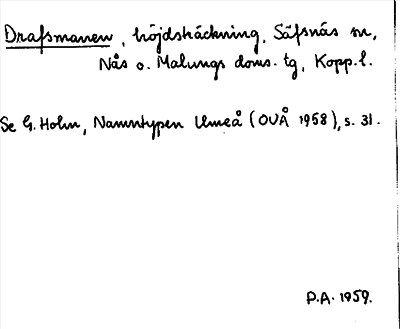 Drafsmanen, höjdsträckning, Säfsnäs sn,
Nås o. Malungs doms. tg, Kopp.l.
Se G. Holm, Namntypen Umeå (OUÅ 1958), s. 31.
P.A. 1959.